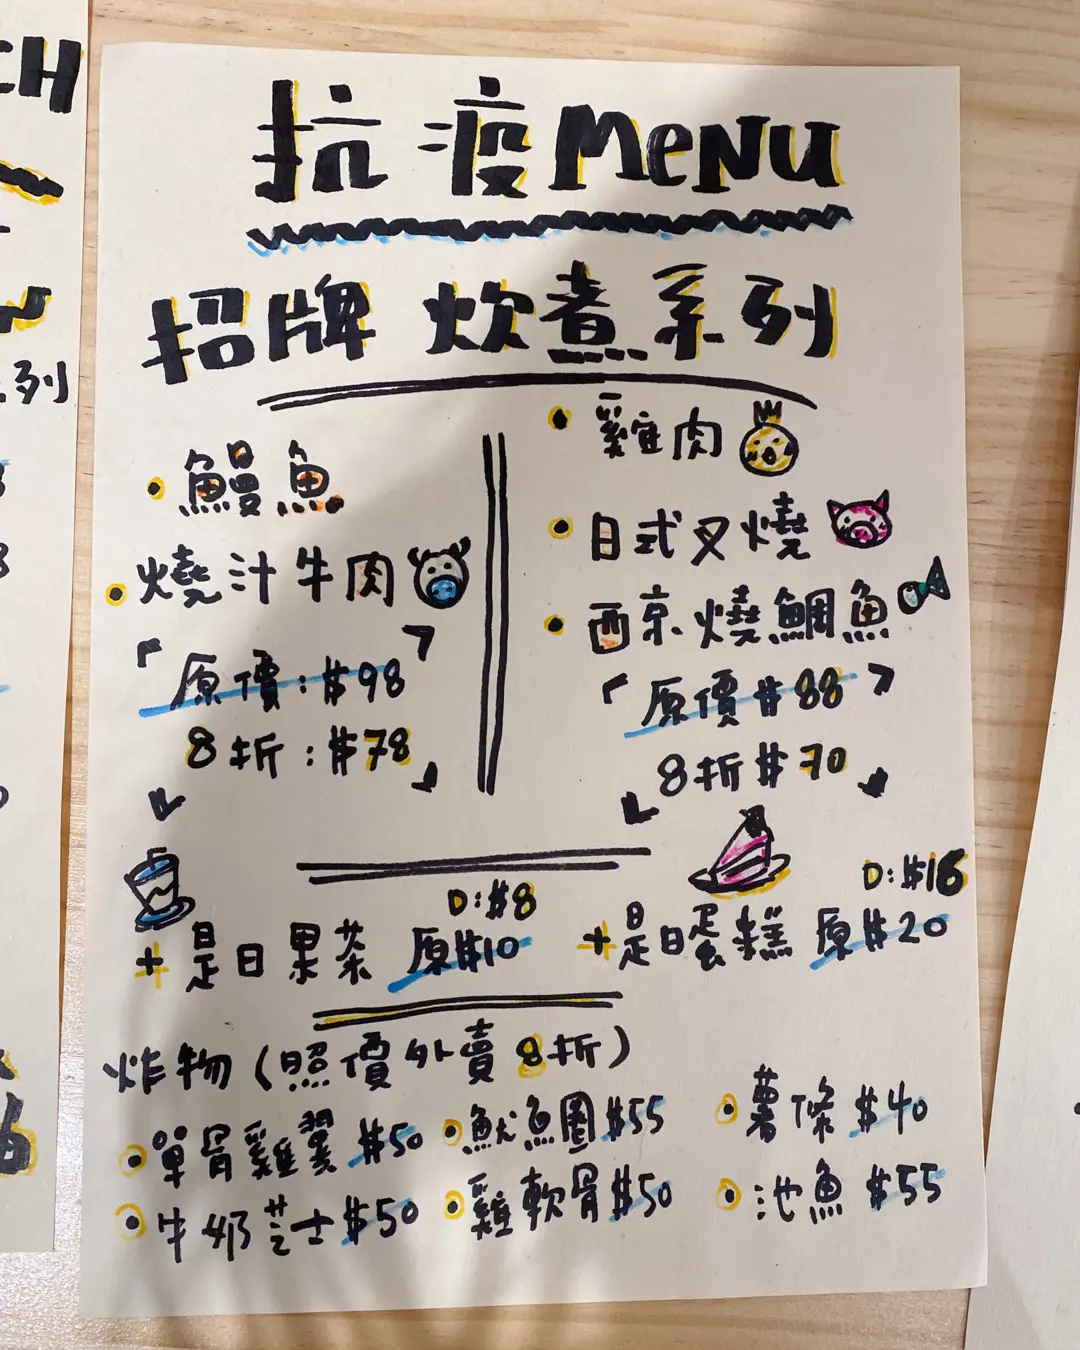 抗疫MeNU
招牌 炊煮系列
• 鰻魚
• 燒汁牛肉
「原價:$98
8折:$78」
• 雞肉
• 日式叉燒
• 西京燒鯛魚
「原價$88
8折$70」
D:$8
+是日果茶 原$10
D:$16
+是日蛋糕 原$20
炸物(照價外賣8折)
• 單骨雞翼 $50
• 魷魚圈$55
• 薯條 $40
• 牛奶芝士$50
• 雞軟骨$50
• 池魚 $55
CH
列